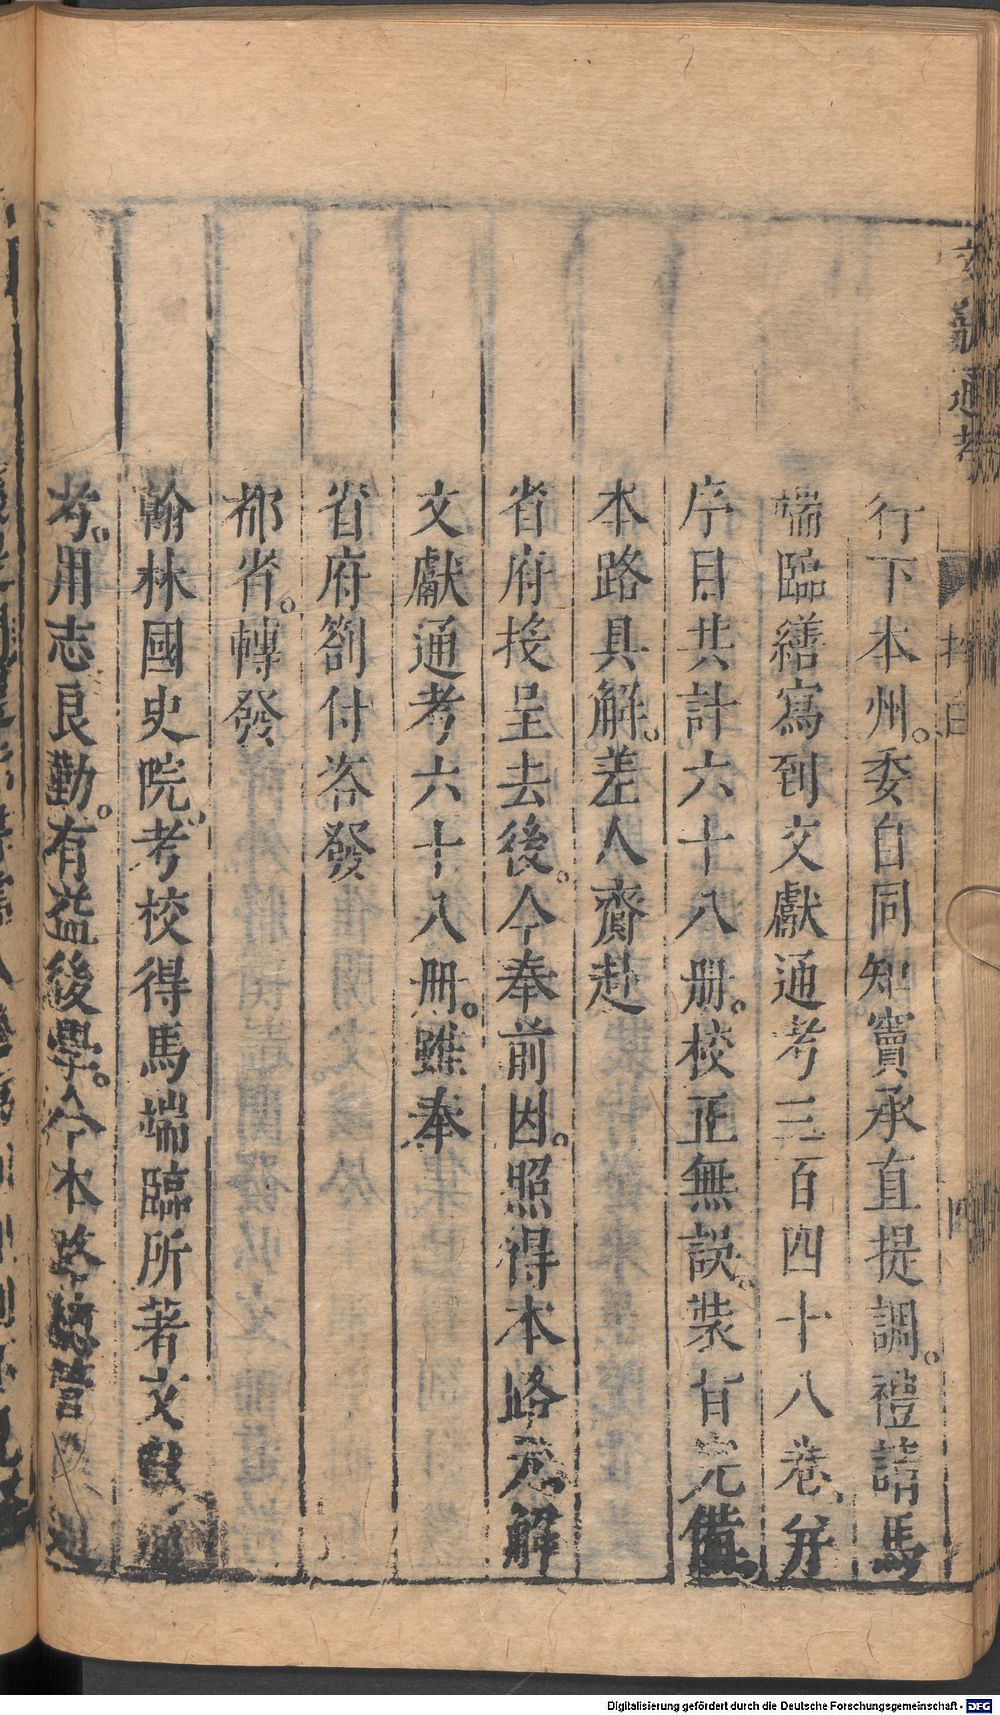 行下本州。委自同知竇承直提調。禮請馬
端臨繕寫到文獻通考三百四十八卷、并
序目共計六十八册。校正無誤。裝背完備
本路具解。差人齎赴
省府投呈去後。今奉前因。照得本路元解
文獻通考六十八册。雖奉
省府劄付咨發
都省。轉發
翰林國史院。考校得馬端臨所著文獻通
考。用志良勤。有益後學。今本路總管
文獻通考
Digitalisierung gefördert durch die Deutsche Forschungsgemeinschaft - DFG